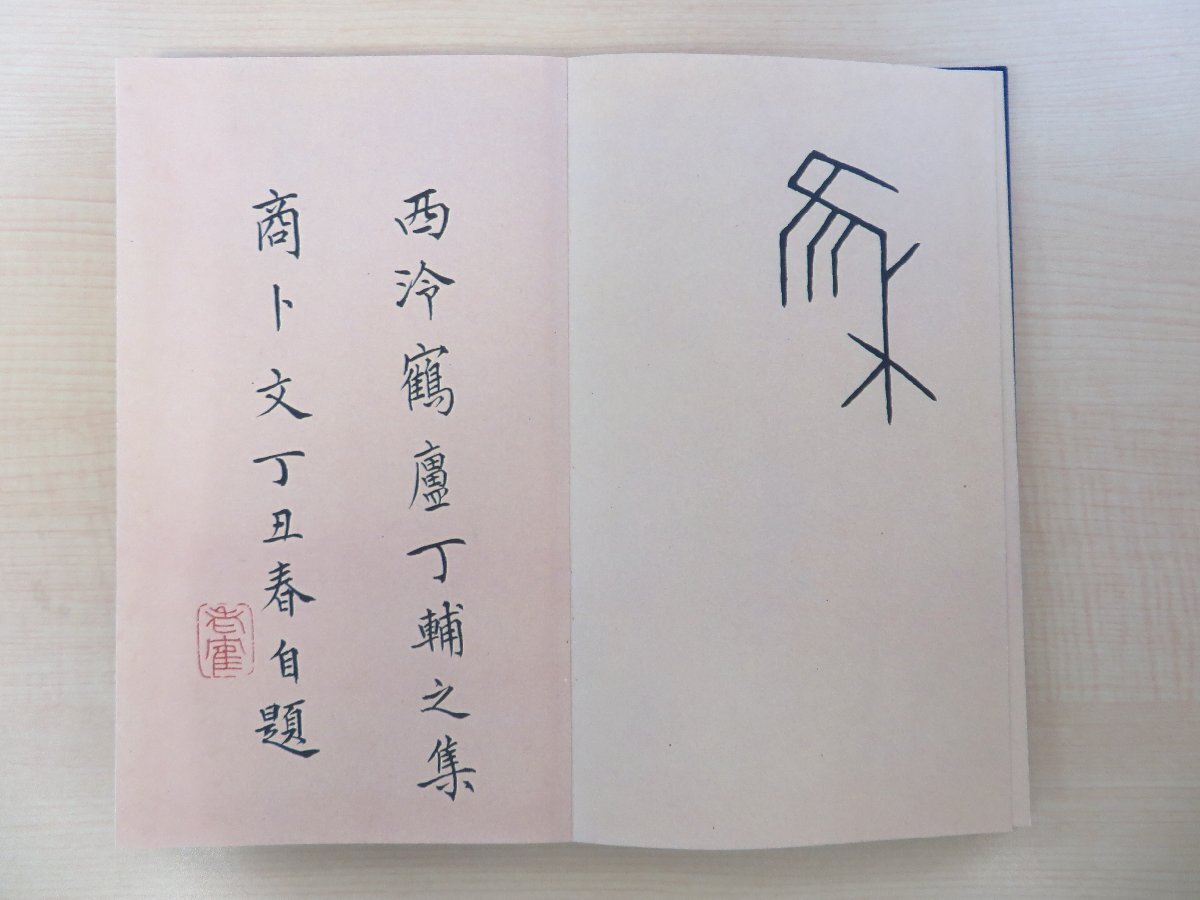 集
西泠鶴廬丁輔之集
商卜文丁丑春自題